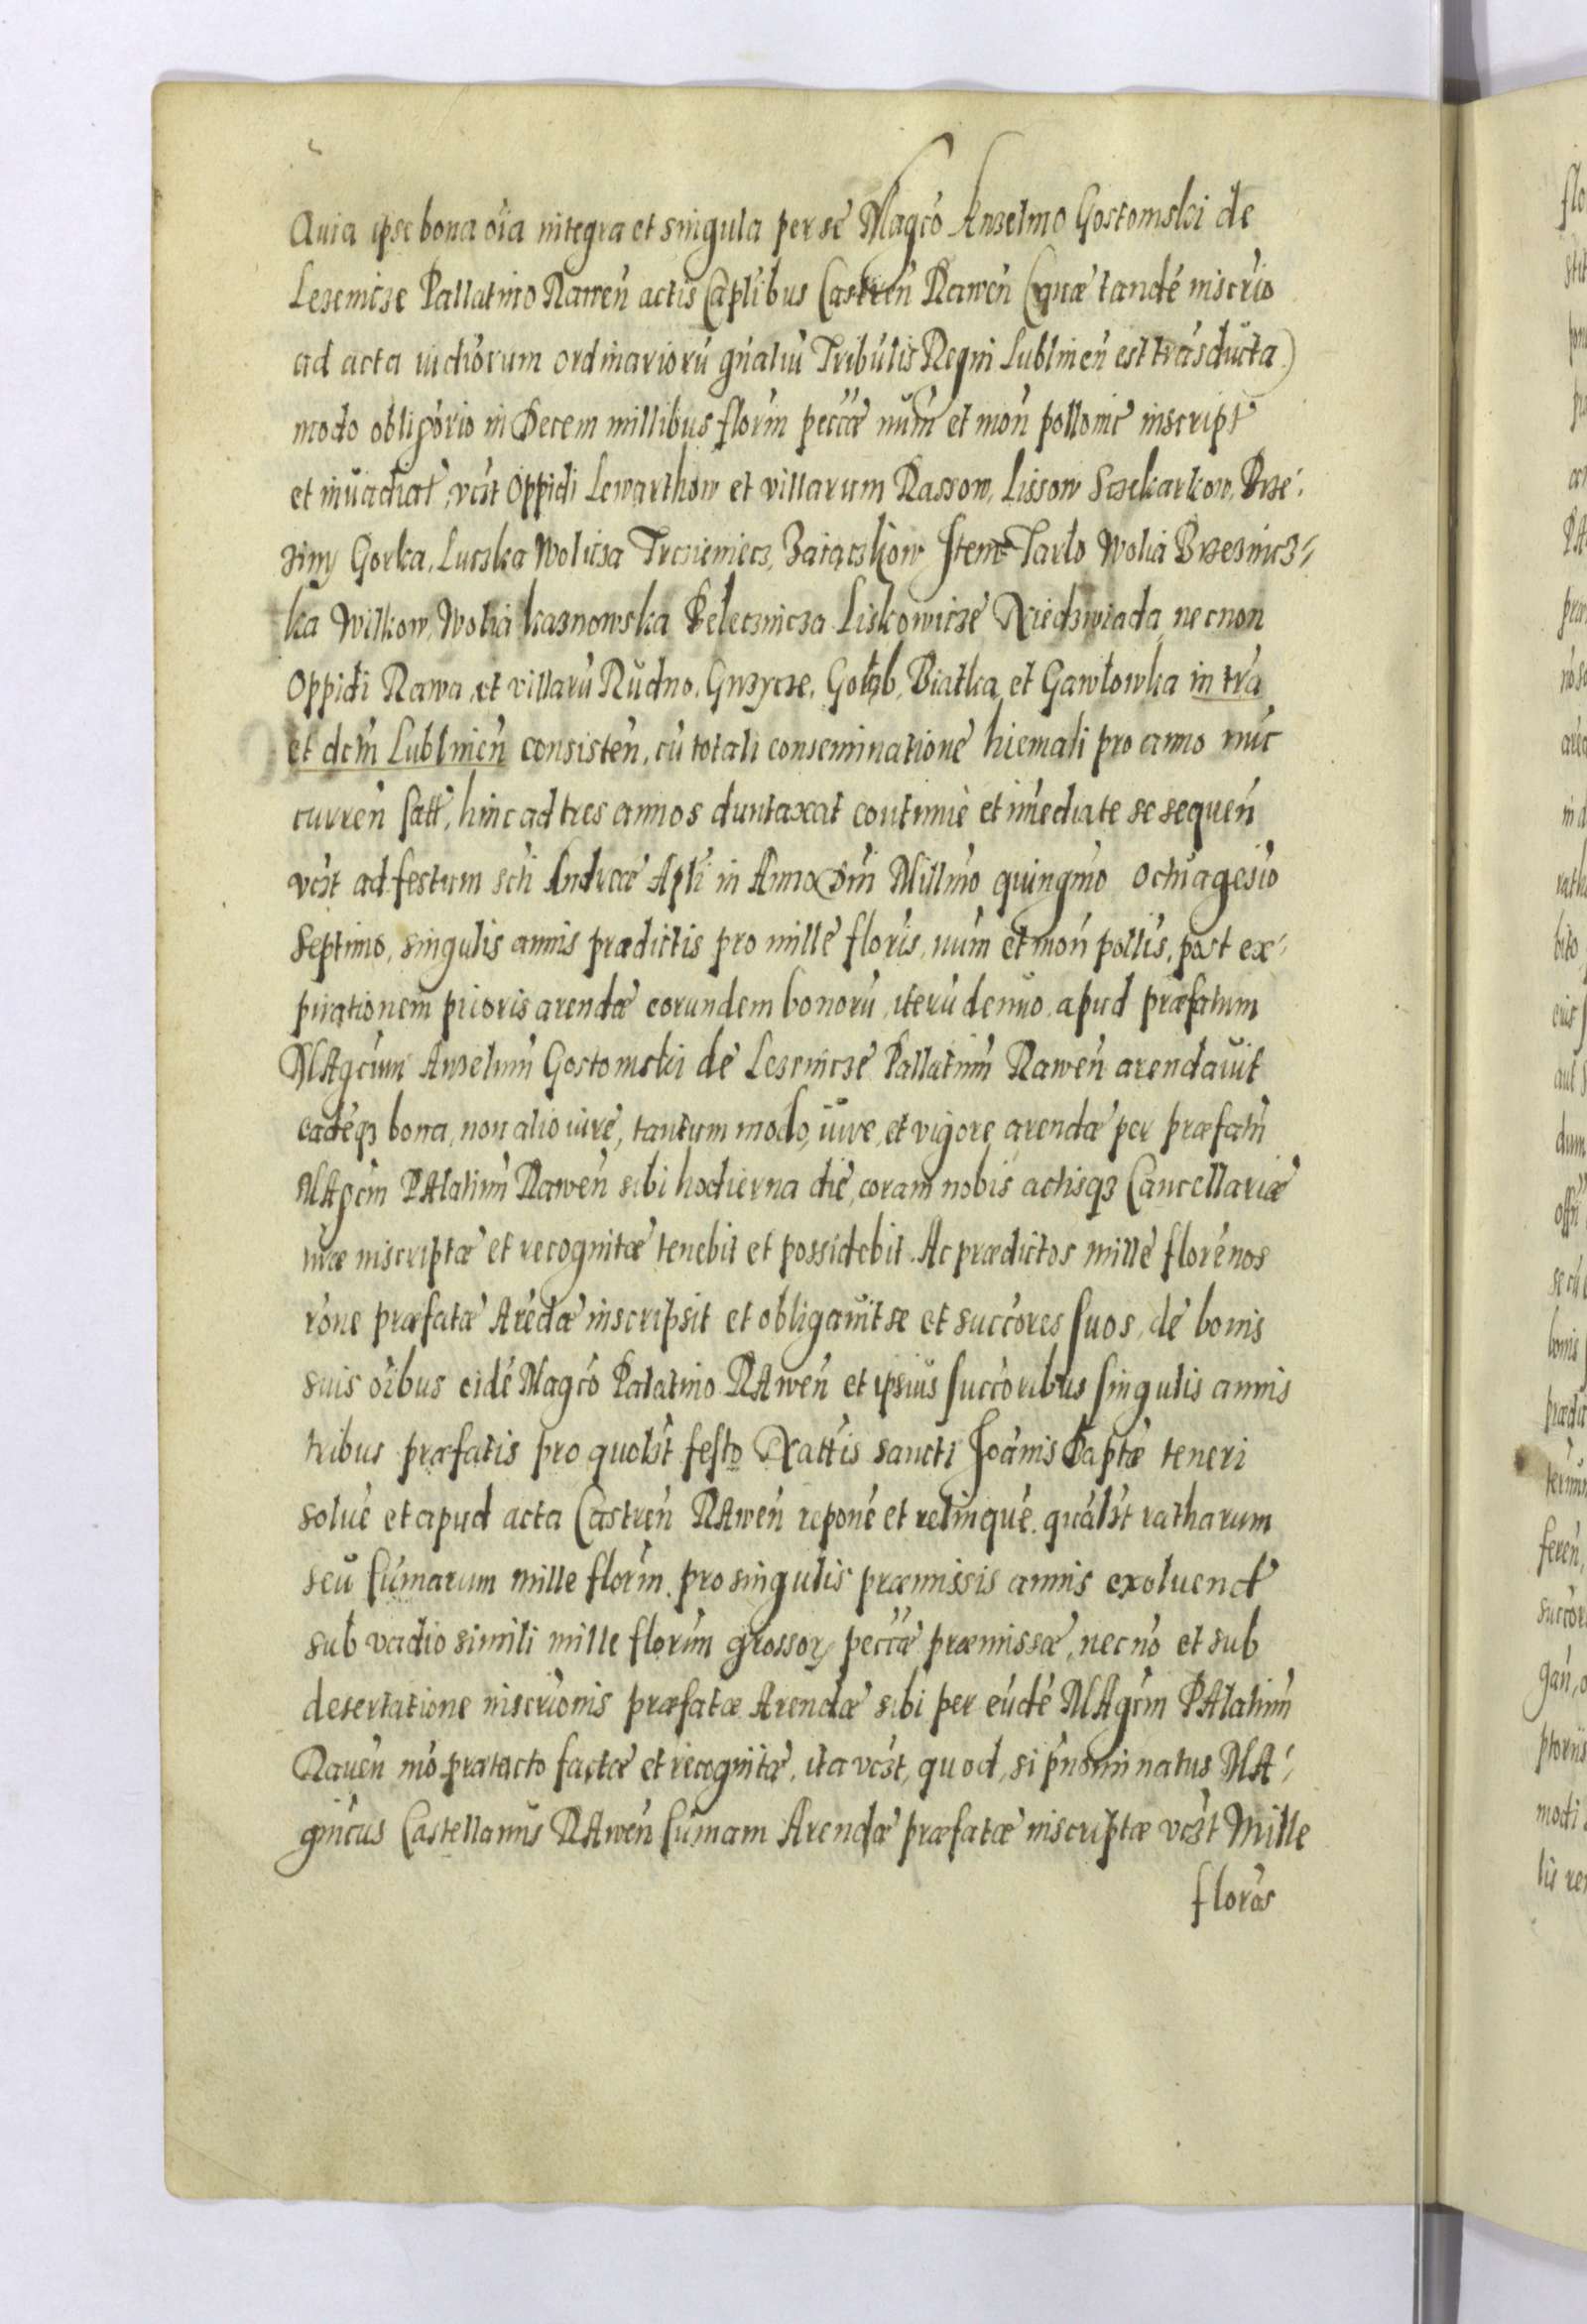 Quia ipse bona oĩa integra et singula per se Magco Anzelmo Gostomski de
Lezenicze Pallatino Rawen̄ actis Caplibus Castren̄ Rawen̄ (quæ tandẽ inscrio
ad acta iudiorum ordinariorũ gn̄aliũ Tribulis Regni Lublinen̄ est trãsducta)
modo obligorio in Decem millibus florin̄ peccæ num̄ et mon̄ pollonic inscript
et inuadiat, vcʒt Oppidi Lewarthow et villarum Rassow, Lissow Sczekarkow, Brze-
ziny Gorka, Luczka Wolicza Trczieniecz, Zaiączkow Item Tarło Wolia Brzeznicz-
ka Wilkow, Wolia kaznowska Belecznicza Liskowicze Niedzwiada, necnon
Oppidi Rawa, et villarũ Rudno, Gnzycze, Gołąb, Białka, et Gawłowka in tra
et dcm̄ Lublinen̄ consisten̄, cũ totali conseminatione hiemali pro anno nũc
curren̄ fatt, hinc ad tres annos duntaxat continuè et imediate se sequen̄
vcʒt ad festum scti Andreæ Apli in Anno Dn̄i Millmo quingmo octuagesio
Septimo, singulis annis prædictis pro mille floris, num̄ et mon̄ pollis, post ex-
pirationem prioris arendæ eorundem bonorũ, iterũ denuo apud præfatum
MAgcum Anzelmũ Gostomski de Lezenicze Pallatinũ Rawen̄ arendauit
eadẽqȝ bona, non alio iure, tantum modo, iure, et vigore arendæ per præfatũ
MAgcm̄ PAlatinũ Rawen̄ sibi hodierna die, coram nobis actisqȝ Cancellariæ
nr̃æ inscriptæ et recognitæ tenebit et possidebit. Ac prædictos mille florenos
rõne præfatæ Arẽdæ inscripsit et obligauit se et succores suos, de bonis
suis oĩbus eidẽ Magco Palatino RAwen̄ et ipsius succoribus singulis annis
tribus præfatis pro quolʒt festo Nattis sancti Joãnis Baptæ teneri
solue et apud acta Castren̄ RAwen̄ repone et relinque, quãlʒt ratharum
seu sũmarum mille florin̄, pro singulis præmissis annis exoluend
sub vadio simili mille florin̄ grossorꝝ peccæ præmissæ, necnõ et sub
desertatione inscriõnis præfatæ Arendæ sibi per eũdẽ MAgcm̄ PAlatinũ
Rauen̄ mo prætacto factæ et recognitæ, ita vcʒt, quod, si pn̄ominatus MA-
gnicus Castellanus RAwen̄ sũmam Arendæ præfatæ inscriptæ vcʒt Mille
floros